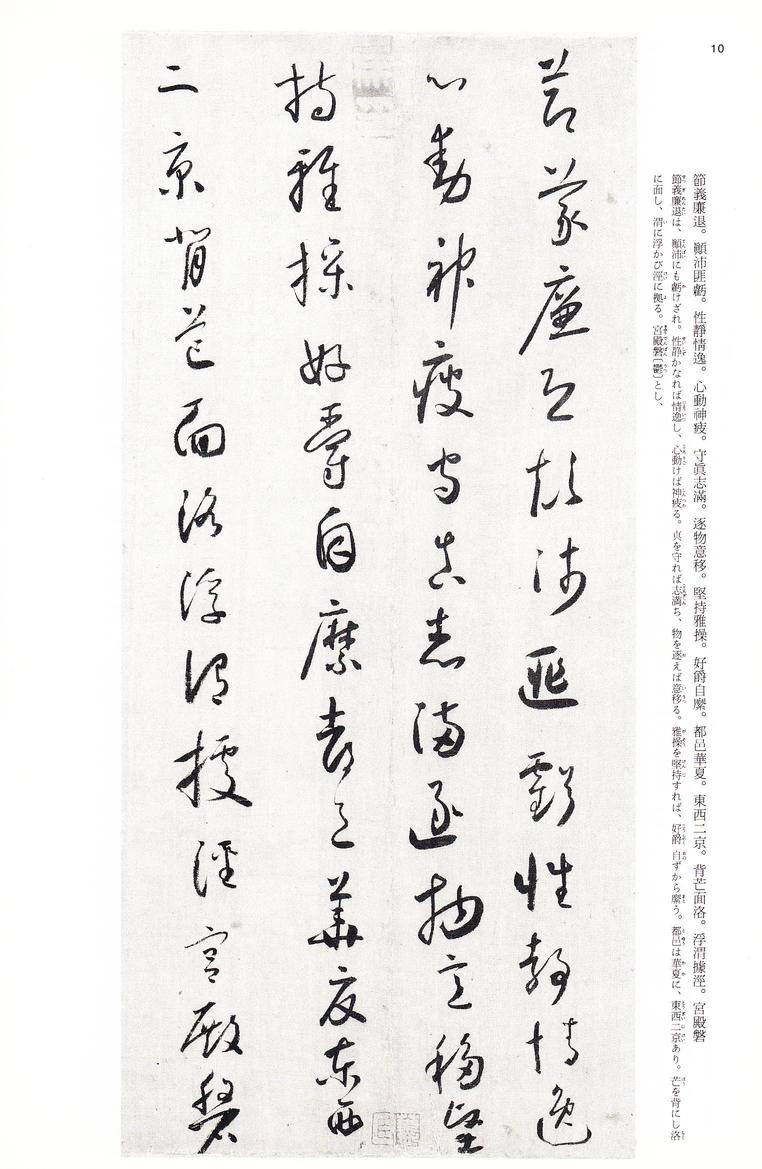 10
節義廉退。顚沛匪虧。性靜情逸。心動神疲。守眞志滿。逐物意移。堅持雅操。好爵自縻。都邑華夏。東西二京。背芒面洛。浮渭據涇。宮殿磐
節義廉退は、顚沛にも虧けざれ。性静かなれば情逸し、心動けば神疲る。真を守れば志満ち、物を逐えば意移る。雅操を堅持すれば、好爵自ずから縻う。都邑は華夏に、東西二京あり。芒を背にし洛
に面し、渭に浮かび涇に拠る。宮殿磐〔鬱〕とし、
節義廉退顚沛匪虧性靜情逸
心動神疲守眞志滿逐物意移堅
持雅操好爵自縻都邑華夏東西
二京背芒面洛浮渭據涇宮殿磐